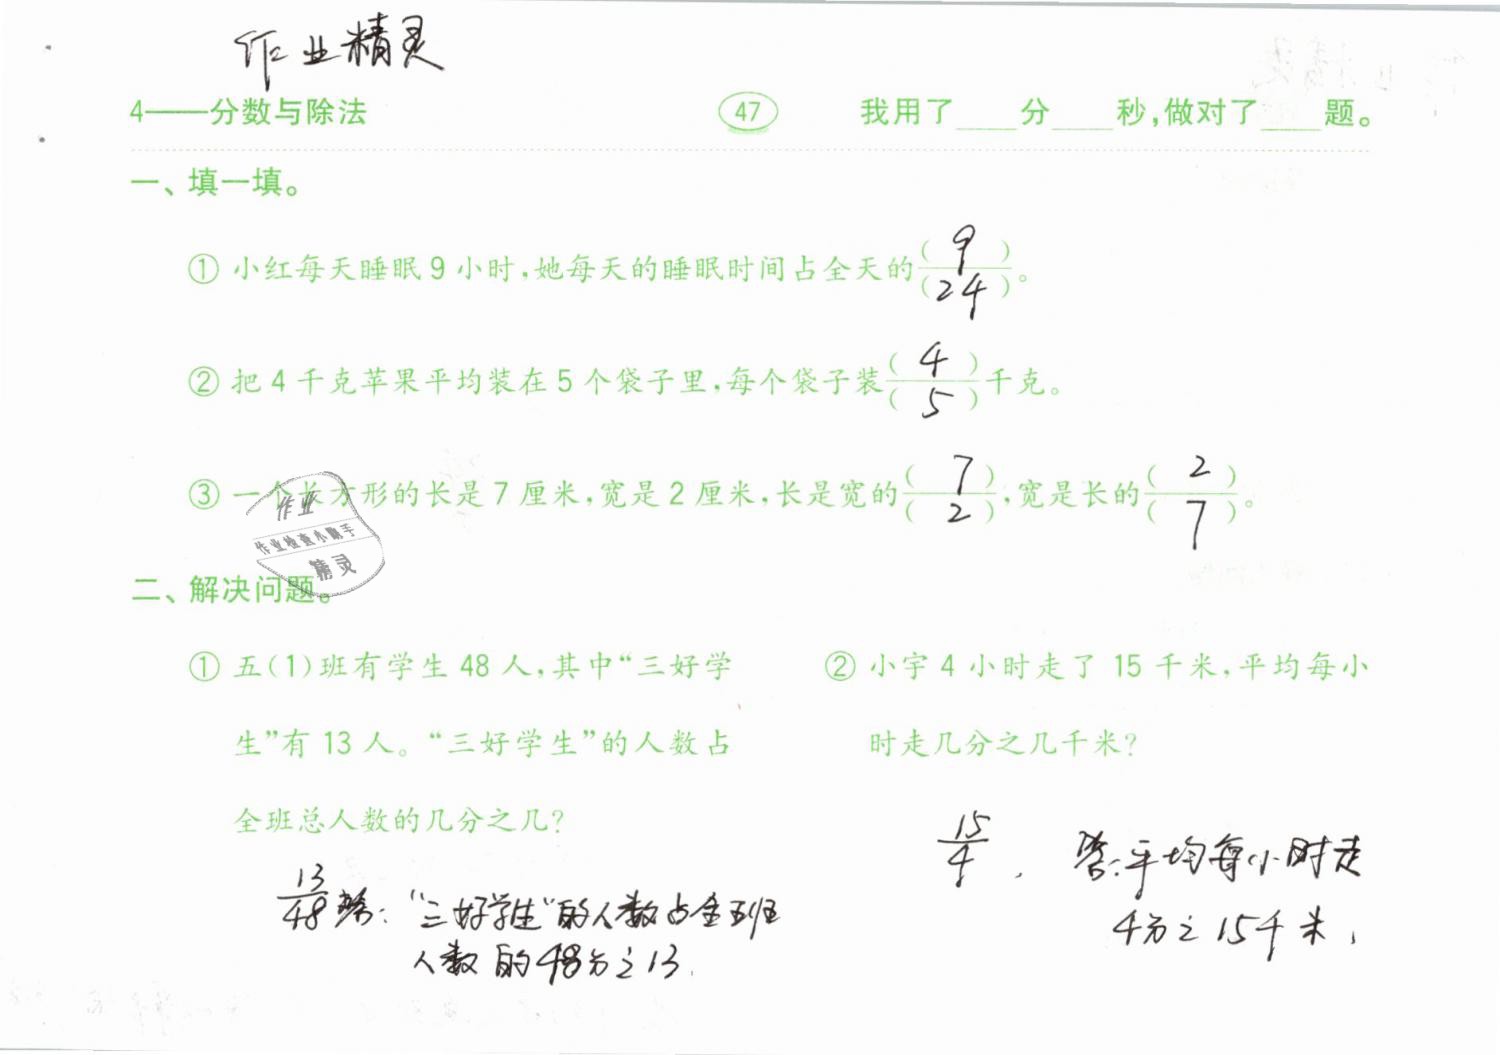 作业精灵
4——分数与除法 47 我用了____分____秒,做对了____题。
一、填一填。
① 小红每天睡眠9小时,她每天的睡眠时间占全天的(9)/(24)。
② 把4千克苹果平均装在5个袋子里,每个袋子装(4)/(5)千克。
③ 一个长方形的长是7厘米,宽是2厘米,长是宽的(7)/(2),宽是长的(2)/(7)。
作业
作业检查小助手
精灵
二、解决问题。
① 五(1)班有学生48人,其中“三好学
生”有13人。“三好学生”的人数占
全班总人数的几分之几?
13/48 答:“三好学生”的人数占全班
人数的48分之13.
② 小宇4小时走了15千米,平均每小
时走几分之几千米?
15/4. 答:平均每小时走
4分之15千米.